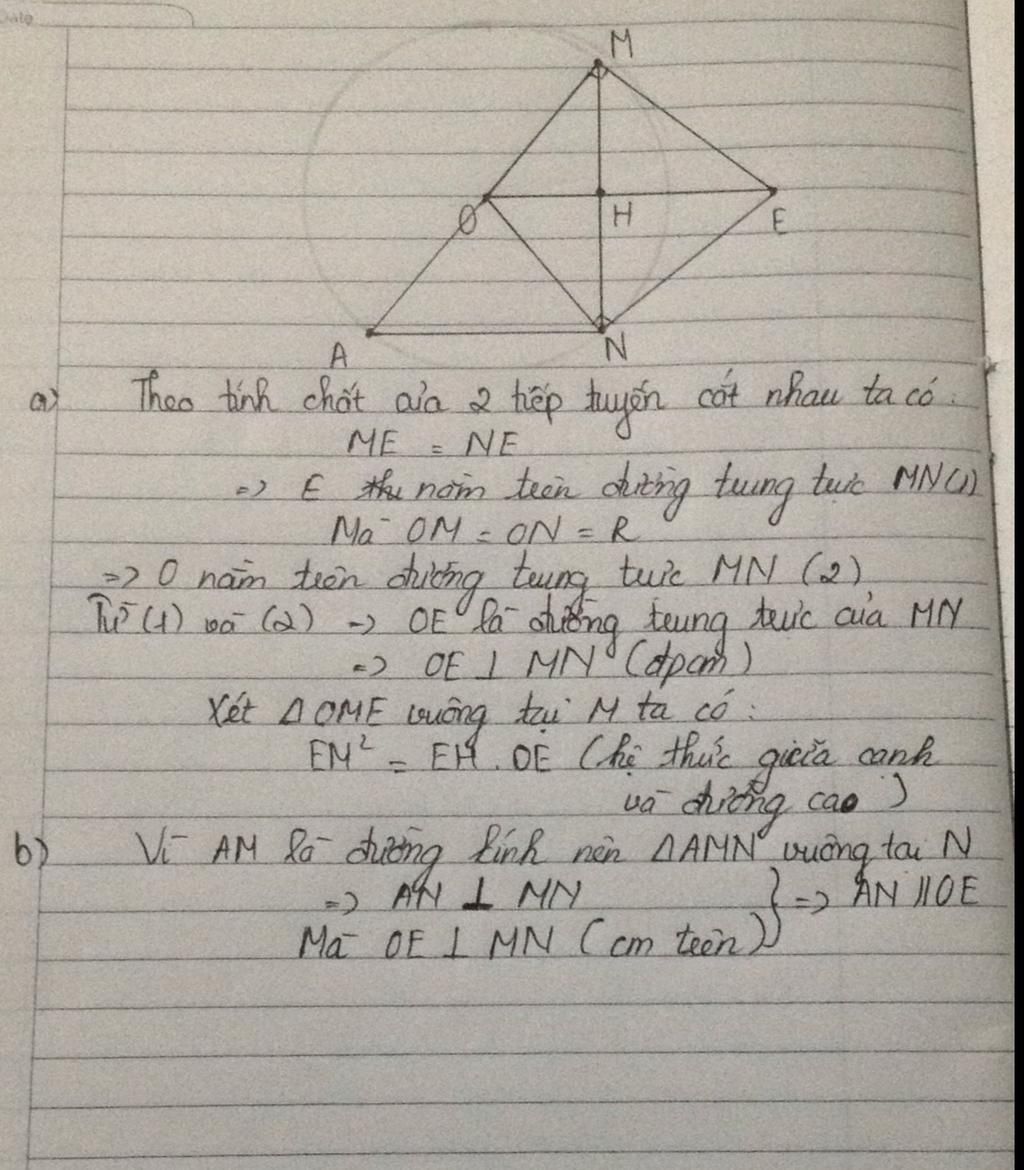 Date
M
O
H
E
A
N
a) Theo tính chất của 2 tiếp tuyến cắt nhau ta có:
ME = NE
=> E nằm trên đường trung trực MN (1)
Mà OM = ON = R
=> O nằm trên đường trung trực MN (2)
Từ (1) và (2) => OE là đường trung trực của MN
=> OE ⊥ MN (đpcm)
Xét ΔOME vuông tại M ta có:
EM² = EH . OE (hệ thức giữa cạnh
và đường cao)
b) Vì AM là đường kính nên ΔAMN vuông tại N
=> AN ⊥ MN } => AN // OE
Mà OE ⊥ MN (cm trên)